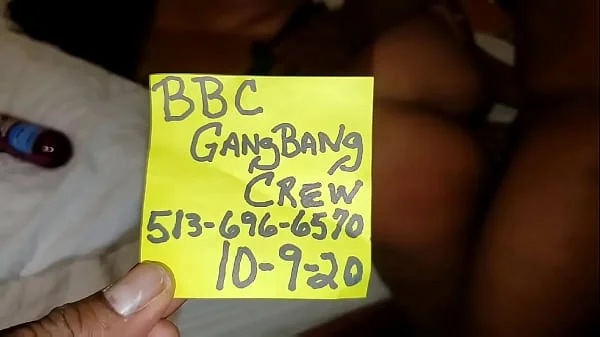 BBC
GangBang
CREW
513-696-6570
10-9-20